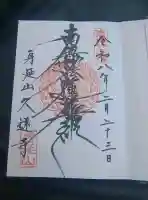 令和八年二月二十三日
南無妙法蓮華経
身延山久遠寺